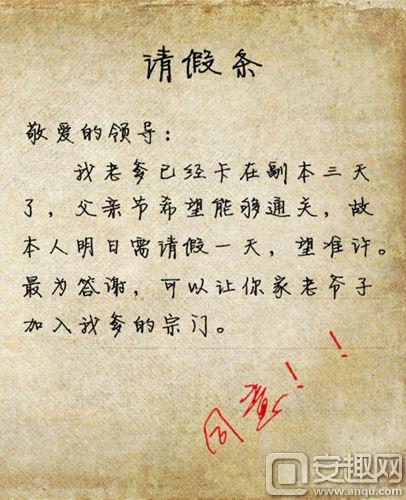 请假条
敬爱的领导：
我老爹已经卡在副本三天
了，父亲节希望能够通关，故
本人明日需请假一天，望准许。
最为答谢，可以让你家老爷子
加入我爹的宗门。
同意！！
安趣网
www.anqu.com